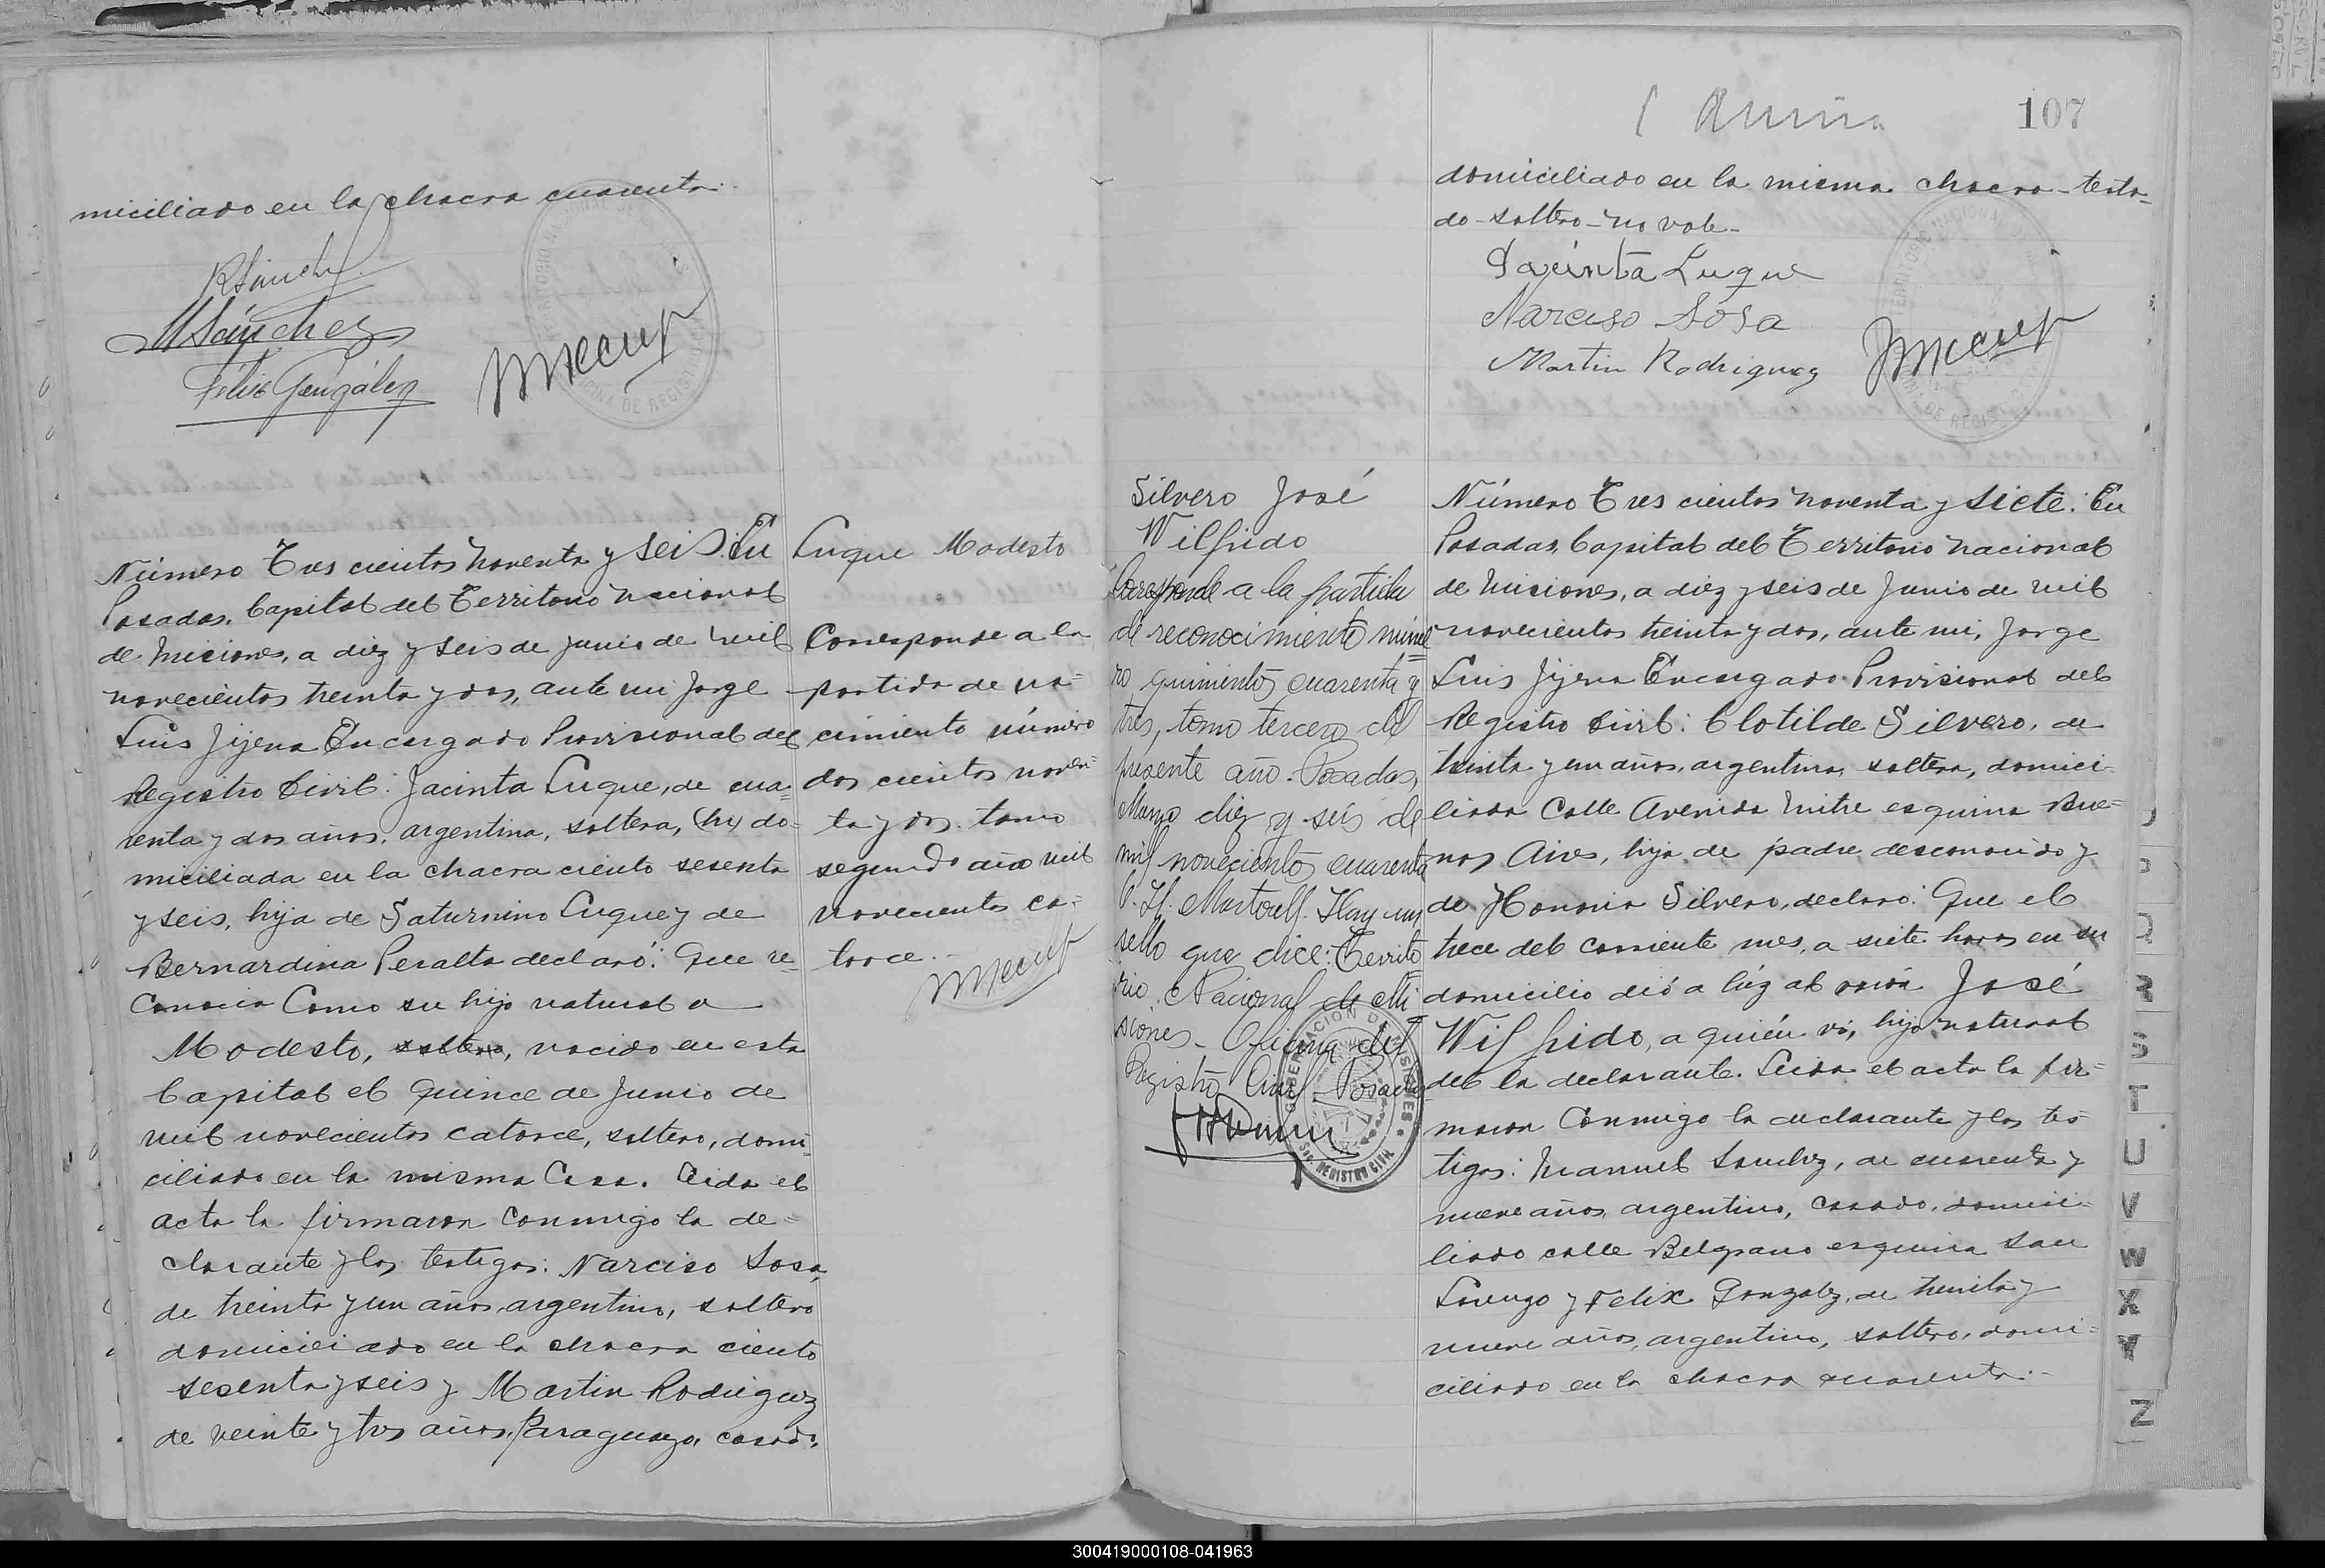 miciliado en la chacra cuarenta.-
RSánchez
MSánchez
Félix González
Número Tres cientos noventa y seis: En
Posadas, Capital del Territorio nacional
de Misiones, a diez y seis de junio de mil
novecientos treinta y dos, ante mi Jorge
Luis Jijena Encargado Provisional del
Registro Civil: Jacinta Luque, de cua=
renta y dos años, argentina, soltera, do=
miciliada en la chacra ciento sesenta
y seis, hija de Saturnino Luque y de
Bernardina Peralta declaró: Que re=
conocia como su hijo natural a
Modesto, soltero, nacido en esta
Capital el quince de Junio de
mil novecientos catorce, soltero, domi=
ciliado en la misma casa. Leida el
acta la firmaron conmigo la de=
clarante y los testigos: Narciso Sosa,
de treinta y un años, argentino, soltero
domiciliado en la chacra ciento
sesenta y seis y Martin Rodriguez
de veinte y tres años, Paraguayo, casado,
Luque Modesto
Corresponde a la
partida de na=
cimiento número
dos cientos noven=
ta y dos tomo
segundo año mil
novecientos ca=
torce.-
107
domiciliado en la misma chacra-testa=
do-soltero-no vale-
Jacinta Luque
Narciso Sosa
Martin Rodriguez
Silvero José
Wilfrido
Corresponde a la partida
de reconocimiento núme=
ro quinientos cuarenta y
tres, tomo tercero del
presente año. Posadas,
Marzo diez y seis de
mil novecientos cuarenta
Hay un
sello que dice: Territo
rio Nacional de Mi
siones - Oficina del
Registro Civil Posadas
GOBERNACION DE MISIONES
REGISTRO CIVIL
Número Tres cientos noventa y siete: En
Posadas, Capital del Territorio nacional
de Misiones, a diez y seis de Junio de mil
novecientos treinta y dos, ante mi, Jorge
Luis Jijena Encargado Provisional del
Registro Civil: Clotilde Silvero, de
treinta y un años, argentina, soltera, domici=
liada Calle Avenida Mitre esquina Bue=
nos Aires, hija de padre desconocido y
de Honoria Silvero, declaró: Que el
trece del corriente mes, a siete horas en su
domicilio dió a lúz al varón José
Wilfrido, a quién vi, hijo natural
de la declarante. Leida el acta la fir=
maron conmigo la declarante y los tes=
tigos: Manuel Sanchez, de cuarenta y
nueve años, argentino, casado, domici=
liado calle Belgrano esquina San
Lorenzo y Felix Gonzalez, de treinta y
nueve años, argentino, soltero, domi=
ciliado en la chacra cuarenta.-
R
S
T
U
V
W
X
Y
Z
300419000108-041963